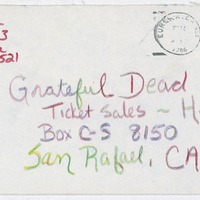 3
521
Grateful Dead
Ticket Sales ~ H
Box C-S 8150
San Rafael, CA